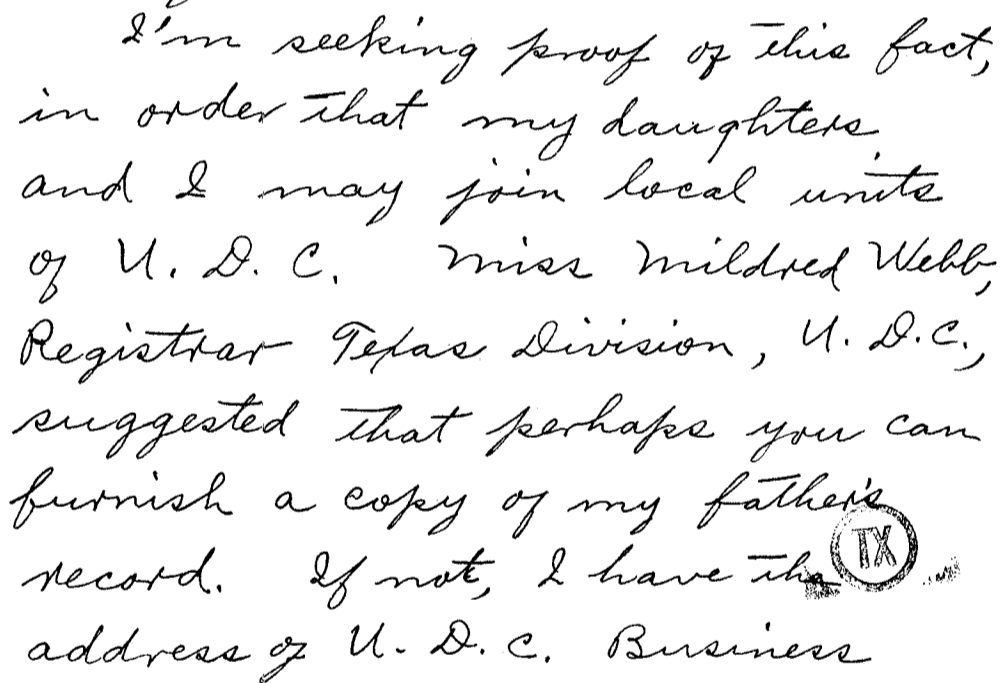 I'm seeking proof of this fact,
in order that my daughters
and I may join local units
of U. D. C. Miss Mildred Webb,
Registrar Texas Division, U. D. C.,
suggested that perhaps you can
furnish a copy of my father's
TX
record. If not, I have the
address of U. D. C. Business